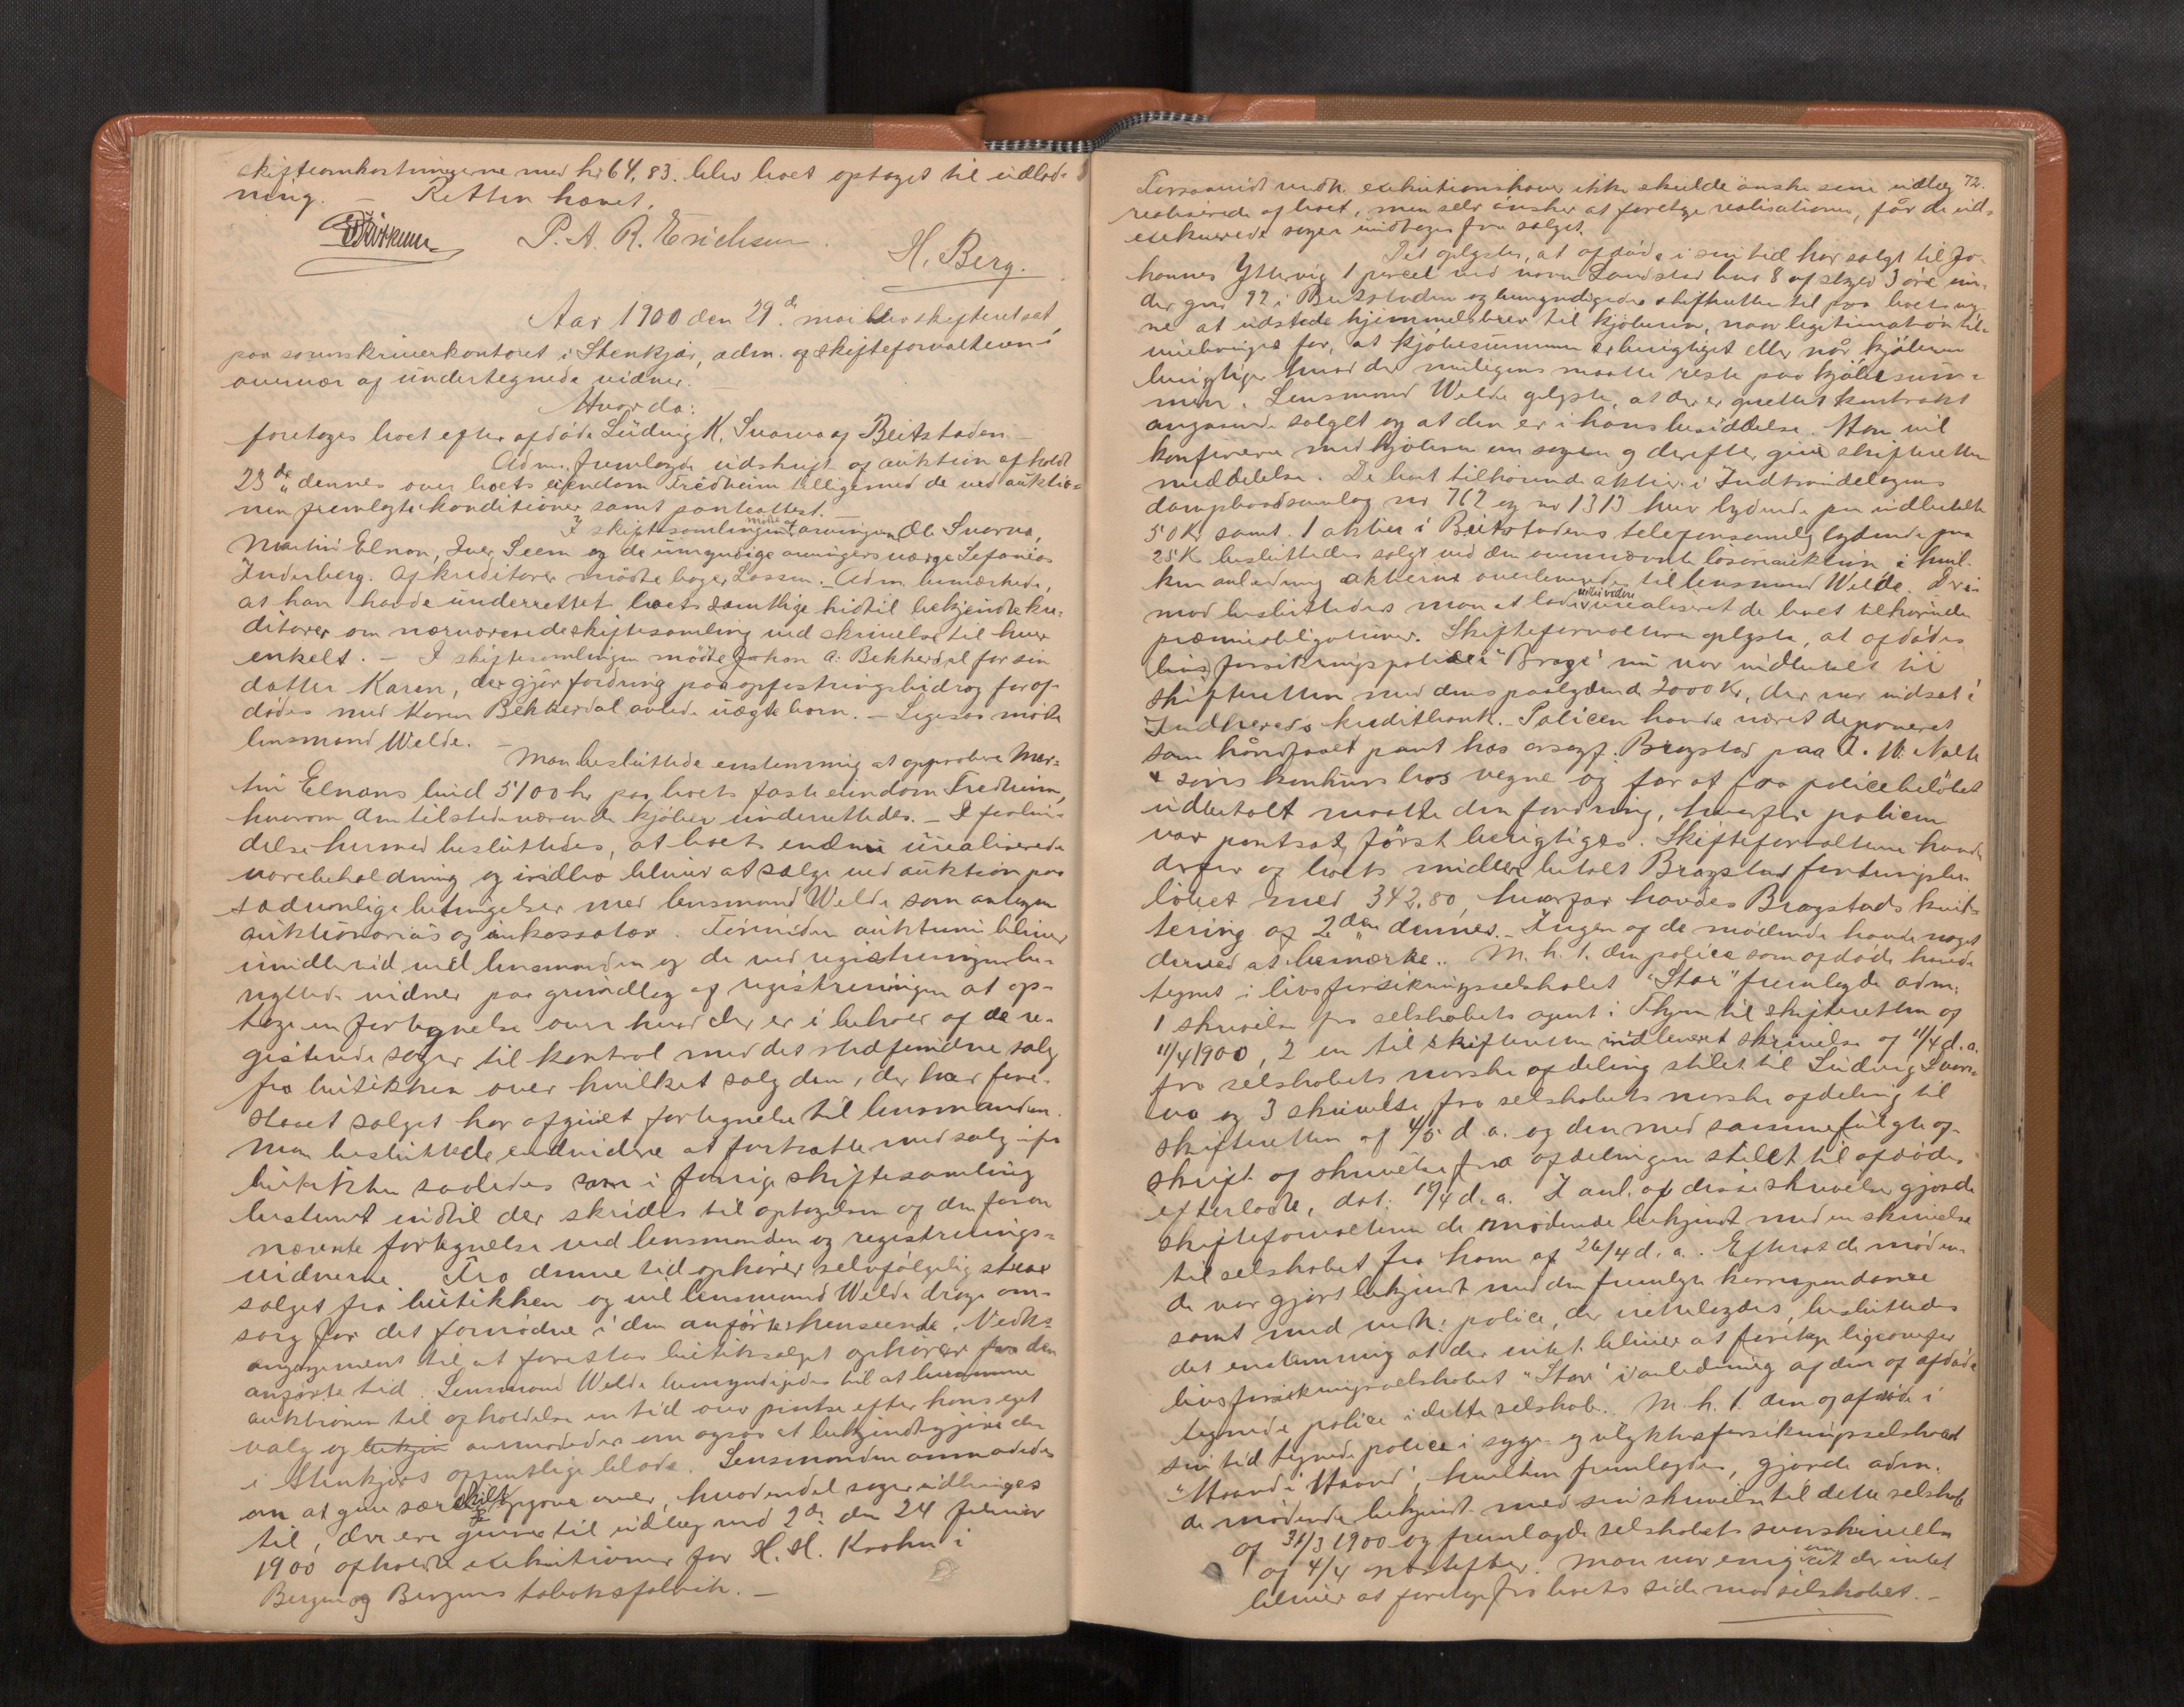 skifteomkostningerne med kr 64,83. blev boet optaget til udlod-
ning. — Retten hævet.
P. A. R. Erichsen.
H. Berg.
Aar 1900 den 29de mai blev skifteret sat
paa sorenskriverkontoret i Stenkjær, adm. af skifteforvalteren i
overvær af undertegnede vidner. —
Hvor da:
foretoges boet efter afdøde Ludvig K. Svarva af Beitstaden —
Adm. fremlagde udskrift af auktion afholdt
23de dennes over boets eiendom Fredheim tilligemed de ved auktio-
nen fremlagte konditioner samt pantattest. —
I skiftesamlingen mødte af arvingerne Ole Svarva,
Martin Elnan, Iver Seem og de umyndige arvingers værge Sefanias
Inderberg. Af kreditorer mødte bager Lossen. — Adm. bemærkede,
at han havde underrettet boets samtlige hidtil bekjendte kre-
ditorer om nærværende skiftesamling ved skrivelse til hver
enkelt. — I skiftesamlingen mødte Johan A. Bekkerdal for sin
datter Karen, der gjør fordring paa opfostringsbidrag for af-
dødes med Karen Bekkerdal avlede uægte barn. — Ligesaa mødte
lensmand Welde. —
Man besluttede enstemmig at approbere Mar-
tin Elnans bud 5100 kr paa boets faste eiendom Fredheim,
hvorom den tilstedeværende kjøber underrettedes. — I forbin-
delse hermed besluttedes, at boets endnu urealiserede
varebeholdning og indbo bliver at sælge ved auktion paa
sædvanlige betingelser med lensmand Welde som antagen
auktionarius og inkassator. Forinden auktionen bliver
imidlertid ved lensmanden og de ved registreringen be-
nyttede vidner paa grundlag af registreringen at op-
tage en fortegnelse over hvad der er i behold af de re-
gistrerede sager til kontrol med det stedfundne salg
fra butikken over hvilket salg den, der har fore-
staaet salget har afgivet fortegnelse til lensmanden.
Man besluttede endvidere at fortsætte med salg ifra
butikken saaledes som i forrige skiftesamling
bestemt indtil der skrides til optagelsen af den foran
nævnte fortegnelse ved lensmanden og registrerings-
vidnerne. Fra denne tid ophører selvfølgelig strax
salget fra butikken og vil lensmand Welde drage om-
sorg for det fornødne i den anførte henseende. Vedk.
engagement til at forestaa butiksalget ophører fra den
anførte tid. Lensmand Welde bemyndigedes til at beramme
auktionen til afholdelse en tid over pintse efter hans eget
valg og anmodedes om ogsaa at bekjendtgjøre den
i Stenkjærs offentlige blade. Lensmanden anmodedes
om at give særskilt opgave over, hvad endel sager udbringes
til, der ere givne til udlæg ved 2de den 24 februar
1900 afholdte exekutioner for H. M. Krohn i
Bergen og Bergens tobaksfabrik. —
72.
Forsaavidt vedk. exekutionshaver ikke skulde ønske sine udlæg
realiserede af boet, men selv ønsker at foretage realisationen, får de ud-
exekverede sager undtages fra salget.
Det oplystes, at afdøde i sin tid har solgt til Jo-
hannes Yttervig 1 parcel ved navn Landstad bnr 8 af skyld 3 øre un-
der gnr 92 i Beitstaden og bemyndigedes skifteretten til paa boets veg-
ne at udstede hjemmelsbrev til kjøberen, naar legitimation til-
veiebringes for, at kjøbesummen er berigtiget eller når kjøberen
berigtiger hvad der muligens maatte reste paa kjøbesum-
men. Lensmand Welde oplyste, at der er oprettet kontrakt
angaaende salget og at den er i hans besiddelse. Han vil
konferere med kjøberen om sagen og derefter give skifteretten
meddelelse. De boet tilhørende aktier i Indtrøndelagens
dampbaadsamlag nr 762 og nr 1313 hver lydende paa indbetalt
50 Kr samt 1 aktie i Beitstadens telefonsamlag lydende paa
25 K besluttedes solgt ved den ovennævnte løsøreauktion i hvil-
ken anledning aktierne overleveredes til lensmand Welde. Der-
imod besluttedes man at lade indtil videre urealiseret de boet tilhørende
præmieobligationer. Skifteforvalteren oplyste, at afdødes
livsforsikringspolice i "Brage" nu var indbetalt til
skifteretten med dens paalydende 2000 Kr, der var indsat i
Indherreds kreditbank. — Policen havde været deponeret
som håndfaaet pant hos orsagf. Bragstad paa A. W. Nalte
& søns konkursbos vegne og for at faa policebeløbet
udbetalt maatte den fordring, hvorfor policen
var pantsat, først berigtiges. Skifteforvalteren havde
derfor af boets midler betalt Bragstad fordringsbe-
løbet med 342,80, hvorfor havdes Bragstads kvit-
tering af 2den dennes. — Ingen af de mødende havde noget
derved at bemærke. M. h. t. den police som afdøde havde
tegnet i livsforsikringsselskabet "Star" fremlagde adm.
1 skrivelse fra selskabets agent i Thjem til skifteretten af
11/4 1900, 2 en til skifteretten indleveret skrivelse af 11/4 d. a.
fra selskabets norske afdeling stilet til Ludvig Svar-
va og 3 skrivelse fra selskabets norske afdeling til
skifteretten af 4/5 d. a. og den med samme fulgte af-
skrift af skrivelse fra afdelingen stilet til afdødes
efterladte, dat. 19/4 d. a. I anl. af disse skrivelser gjorde
skifteforvalteren de mødende bekjendt med en skrivelse
til selskabet fra ham af 26/4 d. a. Efterat de møden-
de var gjort bekjendt med den fremlagte korrespondance
samt med vedk. police, der ihændehavdes, besluttedes
det enstemmig at der intet bliver at foretage ligeoverfor
livsforsikringsselskabet "Star" i anledning af den af afdøde
tegnede police i dette selskab. M. h. t. den af afdøde i
sin tid tegnede police i syge- og ulykkesforsikringsselskabet
"Haand i Haand", hvilken fremlagdes, gjorde adm.
de mødende bekjendt med sin skrivelse til dette selskab
af 31/3 1900 og fremlagde selskabets svarskrivelse
af 4/4 næstefter. Man var enig om at der intet
bliver at foretage fra boets side mod selskabet. —